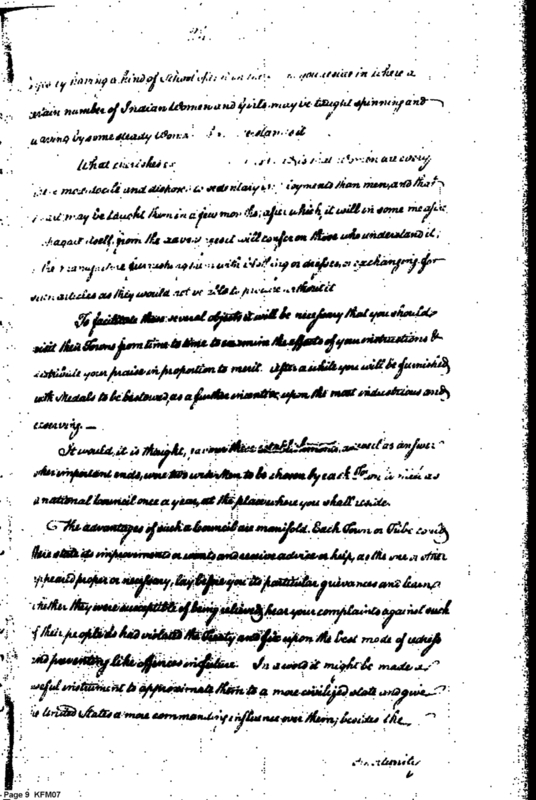 having a kind of School in you reside in where a
certain number of Indian Women and Girls may be taught spinning and
weaving by some steady
What women are every
more docile and disposed to sedentary than men, and that
may be taught them in a few months; after which, it will in some measure
itself, from the will confer on those who understand it;
the manufacture furnishing them with or dresses, or exchanging for
such articles as they would not be able to procure without it
To facilitate these several objects it will be necessary that you should
visit their Towns from time to time to examine the effects of your instructions &
distribute your praise in proportion to merit. After a while you will be furnished
with Medals to be bestowed, as a further incentive, upon the most industrious and
deserving. —
It would, it is thought, these as well as answer
other important ends, were two to be chosen by each Town to
a national Council once a year, at the place where you shall reside.
The advantages of such a Council are manifold. Each Town or Tribe could
there state its improvements or wants and receive advice or help, as the one or other
appeared proper or necessary, lay before you its particular grievances and learn
whether they were susceptible of being relieved, hear your complaints against such
of their people as had violated the Treaty, and fix upon the best mode of redress
and preventing like offences in future. In a word it might be made a
useful instrument to approximate them to a more civilized state and give
United States a more commanding influence over them; besides the
Page 9 KFM07